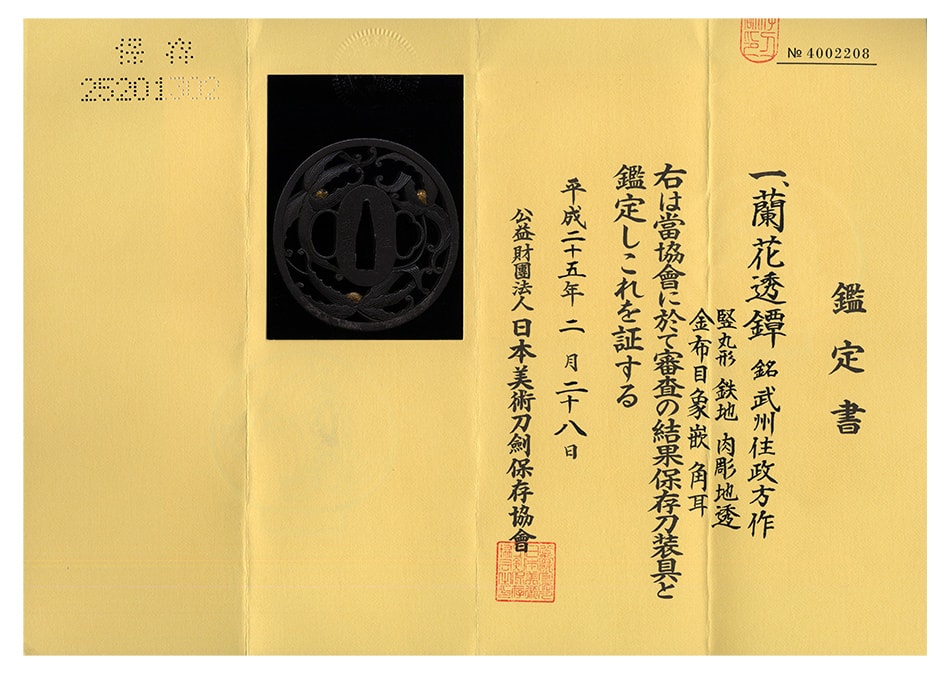 № 4002208
鑑定書
一、蘭花透鐔 銘 武州住政方作
竪丸形 鉄地 肉彫地透
金布目象嵌 角耳
右は當協會に於て審査の結果保存刀装具と
鑑定しこれを証する
平成二十五年二月二十八日
公益財團法人 日本美術刀劍保存協會
保存
25201302